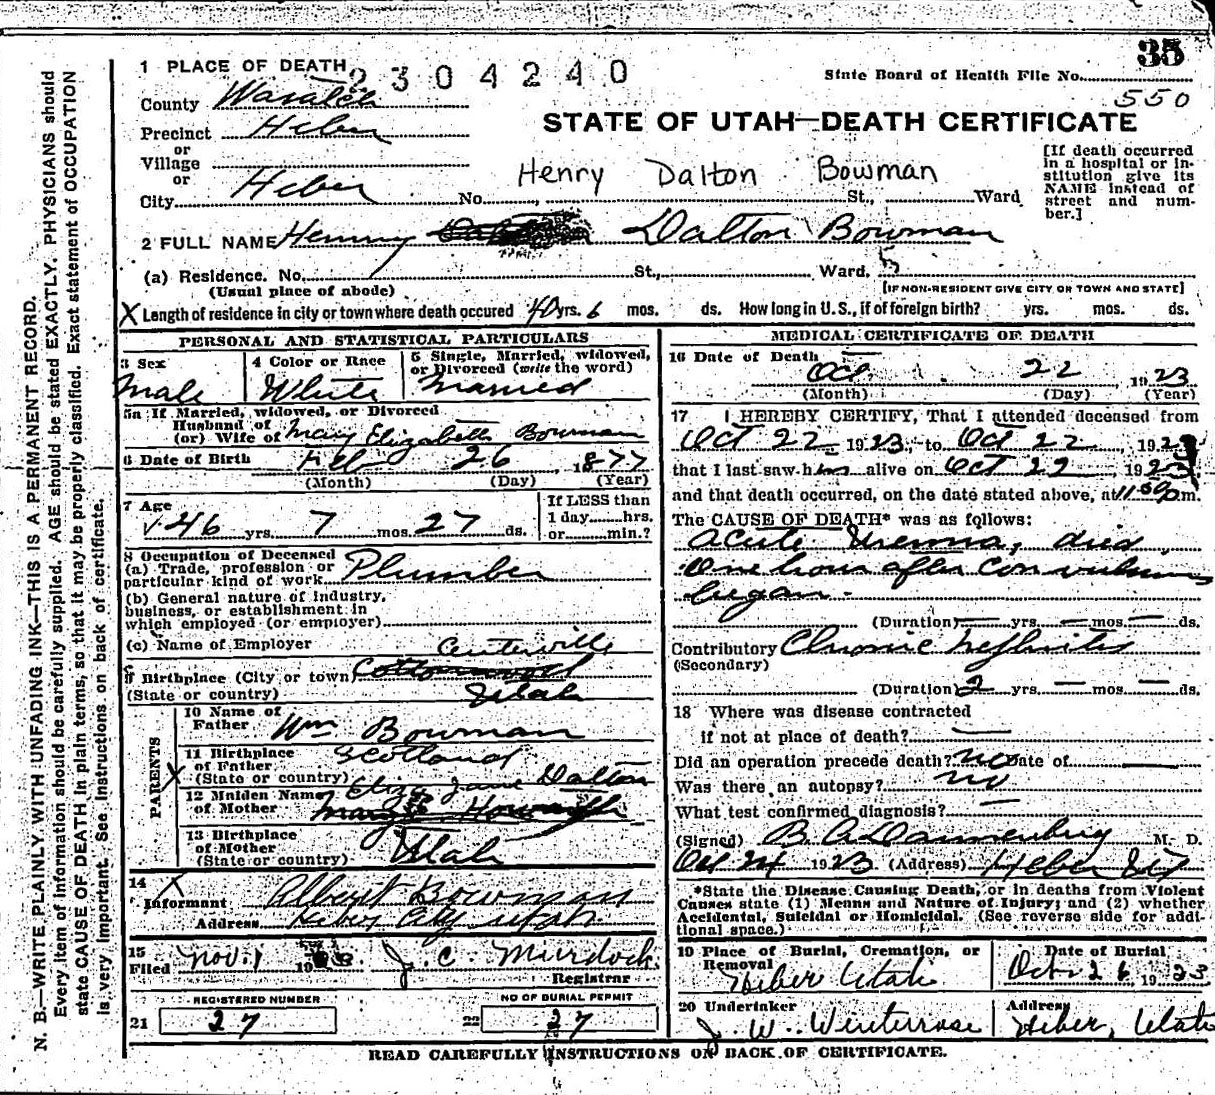 35
1 PLACE OF DEATH
2304240
State Board of Health File No.
550
County Wasatch
Precinct Heber
or
Village
or
City Heber No. St., Ward
STATE OF UTAH—DEATH CERTIFICATE
[If death occurred in a hospital or institution give its NAME instead of street and number.]
Henry Dalton Bowman
2 FULL NAME Henry Dalton Bowman
(a) Residence. No. St., Ward,
(Usual place of abode)
[IF NON-RESIDENT GIVE CITY OR TOWN AND STATE]
X Length of residence in city or town where death occured 40 yrs. 6 mos. ds. How long in U.S., if of foreign birth? yrs. mos. ds.
PERSONAL AND STATISTICAL PARTICULARS
3 Sex
Male
4 Color or Race
White
5 Single, Married, widowed, or Divorced (write the word)
Married
5a If Married, widowed, or Divorced
Husband of
(or) Wife of Mary Elizabeth Bowman
6 Date of Birth Feb 26, 1877
(Month) (Day) (Year)
7 Age
46 yrs. 7 mos. 27 ds.
If LESS than
1 day......hrs.
or......min.?
8 Occupation of Deceased
(a) Trade, profession or
particular kind of work Plumber
(b) General nature of industry,
business, or establishment in
which employed (or employer)
(c) Name of Employer
Centerville
9 Birthplace (City or town) Cottonwood
(State or country) Utah
PARENTS
10 Name of
Father Wm Bowman
11 Birthplace
of Father
(State or country) Scotland
X
Eliza Jane Dalton
12 Maiden Name
of Mother
13 Birthplace
of Mother
(State or country) Utah
14 X
Informant Albert Bowman
Address Heber City Utah
15
Filed Nov. 1 19 J. C. Murdock
Registrar
REGISTERED NUMBER
21 27
NO OF BURIAL PERMIT
22 27
MEDICAL CERTIFICATE OF DEATH
16 Date of Death
Oct. 22 1923
(Month) (Day) (Year)
17 I HEREBY CERTIFY, That I attended deceased from
Oct 22 1923, to Oct 22, 1923
that I last saw him alive on Oct 22, 1923
and that death occurred, on the date stated above, at 11:50 p.m.
The CAUSE OF DEATH* was as follows:
Acute Uremia, died
one hour after convulsions
began.
(Duration) — yrs. — mos. — ds.
Contributory Chronic Nephritis
(Secondary)
(Duration) 2 yrs. — mos. — ds.
18 Where was disease contracted
if not at place of death? —
Did an operation precede death? no Date of —
Was there an autopsy? no
What test confirmed diagnosis? —
(Signed) B. A. Dannenberg M. D.
Oct 24 1923 (Address) Heber Ut
*State the Disease Causing Death, or in deaths from Violent
Causes state (1) Menns and Nature of Injury; and (2) whether
Accidental, Suicidal or Homicidal. (See reverse side for addi-
tional space.)
19 Place of Burial, Cremation, or
Removal
Heber Utah
Date of Burial
Oct 26, 1923
20 Undertaker
J. W. Winterrose
Address
Heber, Utah
READ CAREFULLY INSTRUCTIONS ON BACK OF CERTIFICATE.
N. B.—WRITE PLAINLY WITH UNFADING INK—THIS IS A PERMANENT RECORD.
Every item of information should be carefully supplied. AGE should be stated EXACTLY. PHYSICIANS should
state CAUSE OF DEATH in plain terms, so that it may be properly classified. Exact statement of OCCUPATION
is very important. See instructions on back of certificate.